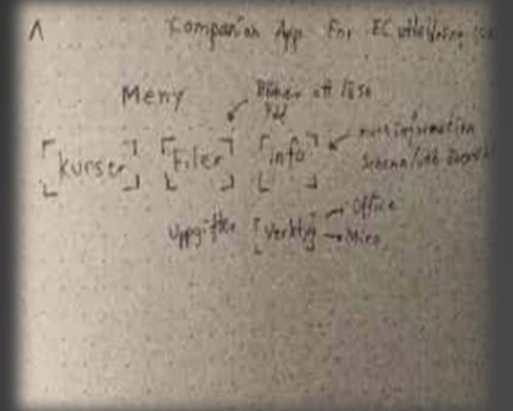 Companion App For EC utbildning
Meny
Böcker att läsa
Pdf
kurser Filer info
kursinformation
Schema
Uppgifter Verktyg
Office
Miro